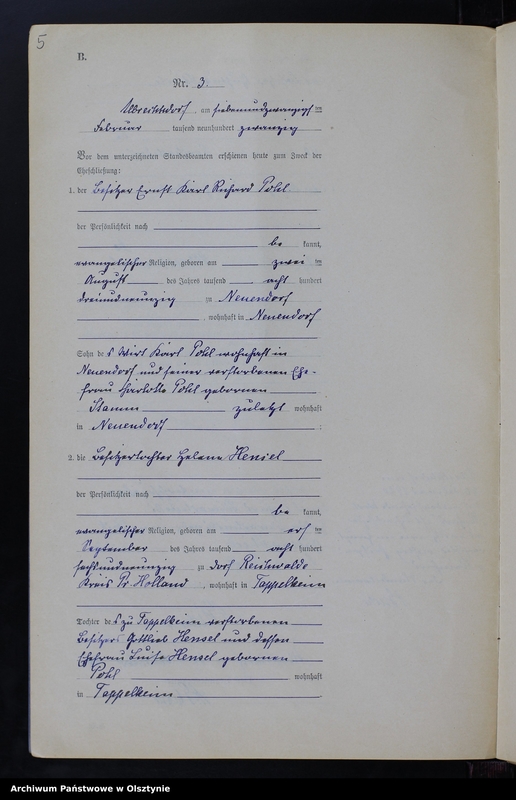 5
B.
Nr. 3.
Albrechtsdorf am siebenundzwanzigsten
Februar tausend neunhundert zwanzig
Vor dem unterzeichneten Standesbeamten erschienen heute zum Zweck der
Eheschließung:
1. der Besitzer Ernst Karl Richard Pohl
der Persönlichkeit nach
be kannt,
evangelischer Religion, geboren am zwei ten
August des Jahres tausend acht hundert
dreiundneunzig zu Neuendorf
, wohnhaft in Neuendorf
Sohn des Wirt Karl Pohl wohnhaft in
Neuendorf und seiner verstorbenen Ehe-
frau Charlotte Pohl geborenen
zuletzt wohnhaft
in Neuendorf :
2. die Besitzertochter Helene Hensel
der Persönlichkeit nach
be kannt,
evangelischer Religion, geboren am elf ten
September des Jahres tausend acht hundert
sechsundneunzig zu Dorf Reichwalde
Kreis Pr. Holland, wohnhaft in Toppelkeim
Tochter des zu Toppelkeim verstorbenen
Besitzers Gottlieb Hensel und dessen
Ehefrau Luise Hensel geborenen
Pohl wohnhaft
in Toppelkeim
Archiwum Państwowe w Olsztynie